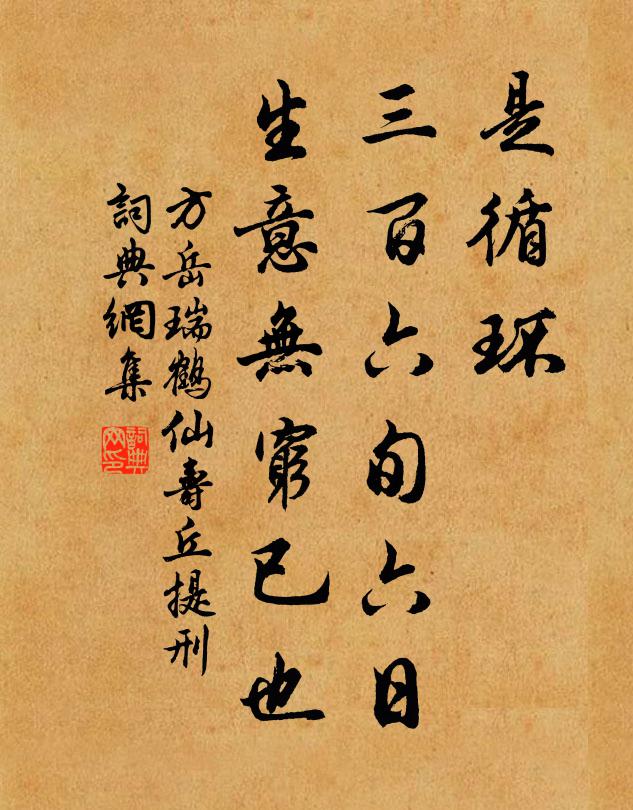 是循环
三百六旬六日
生意無窮已也
方岳瑞鶴仙壽丘提刑
詞典網集
詞典網印